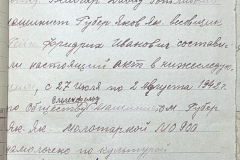 машинист Губер Яков Як. весовщик
Фридрих Иванович состави-
ли настоящий акт в нижеследую-
щем, с 27 июля по 2 августа 1942 г.
по Обществу машинистом Губер
Як. Як. молотаркой № 900
намолочено по культурам